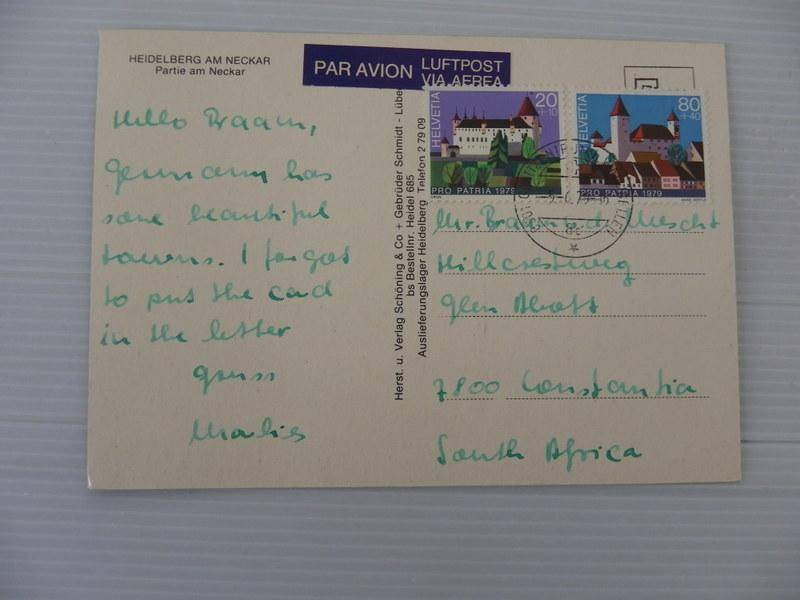 HEIDELBERG AM NECKAR
Partie am Neckar
PAR AVION LUFTPOST
VIA AEREA
Hello Braam,
Germany has
some beautiful
towns. I forgot
to put the card
in the letter
Gruss
Marlies
Herst. u. Verlag Schöning & Co + Gebrüder Schmidt - Lübe
bs Bestellnr. Heidel 685
Auslieferungslager Heidelberg Telefon 2 79 09
HELVETIA
20
+10
PRO PATRIA 1979
80
+40
PRO PATRIA 1979
Mr. Braam
Hillcrestweg
Glen Alott
7800 Constantia
South Africa